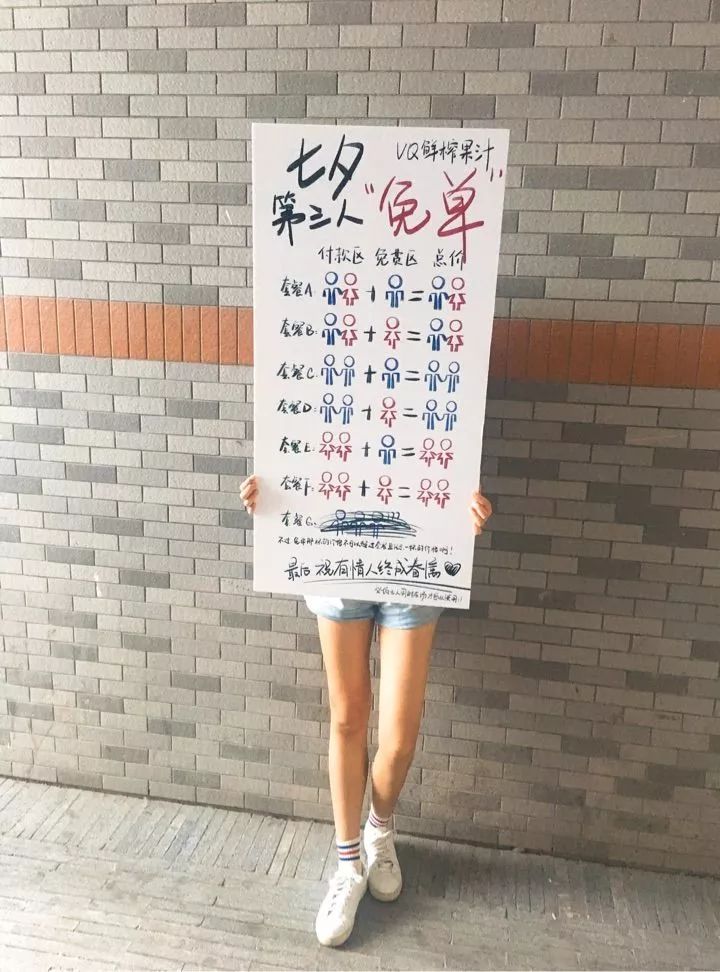 VQ鲜榨果汁
七夕
第三人"免单"
付款区 免费区 总价
套餐A: + =
套餐B: + =
套餐C: + =
套餐D: + =
套餐E: + =
套餐F: + =
套餐G:
最后祝有情人终成眷属